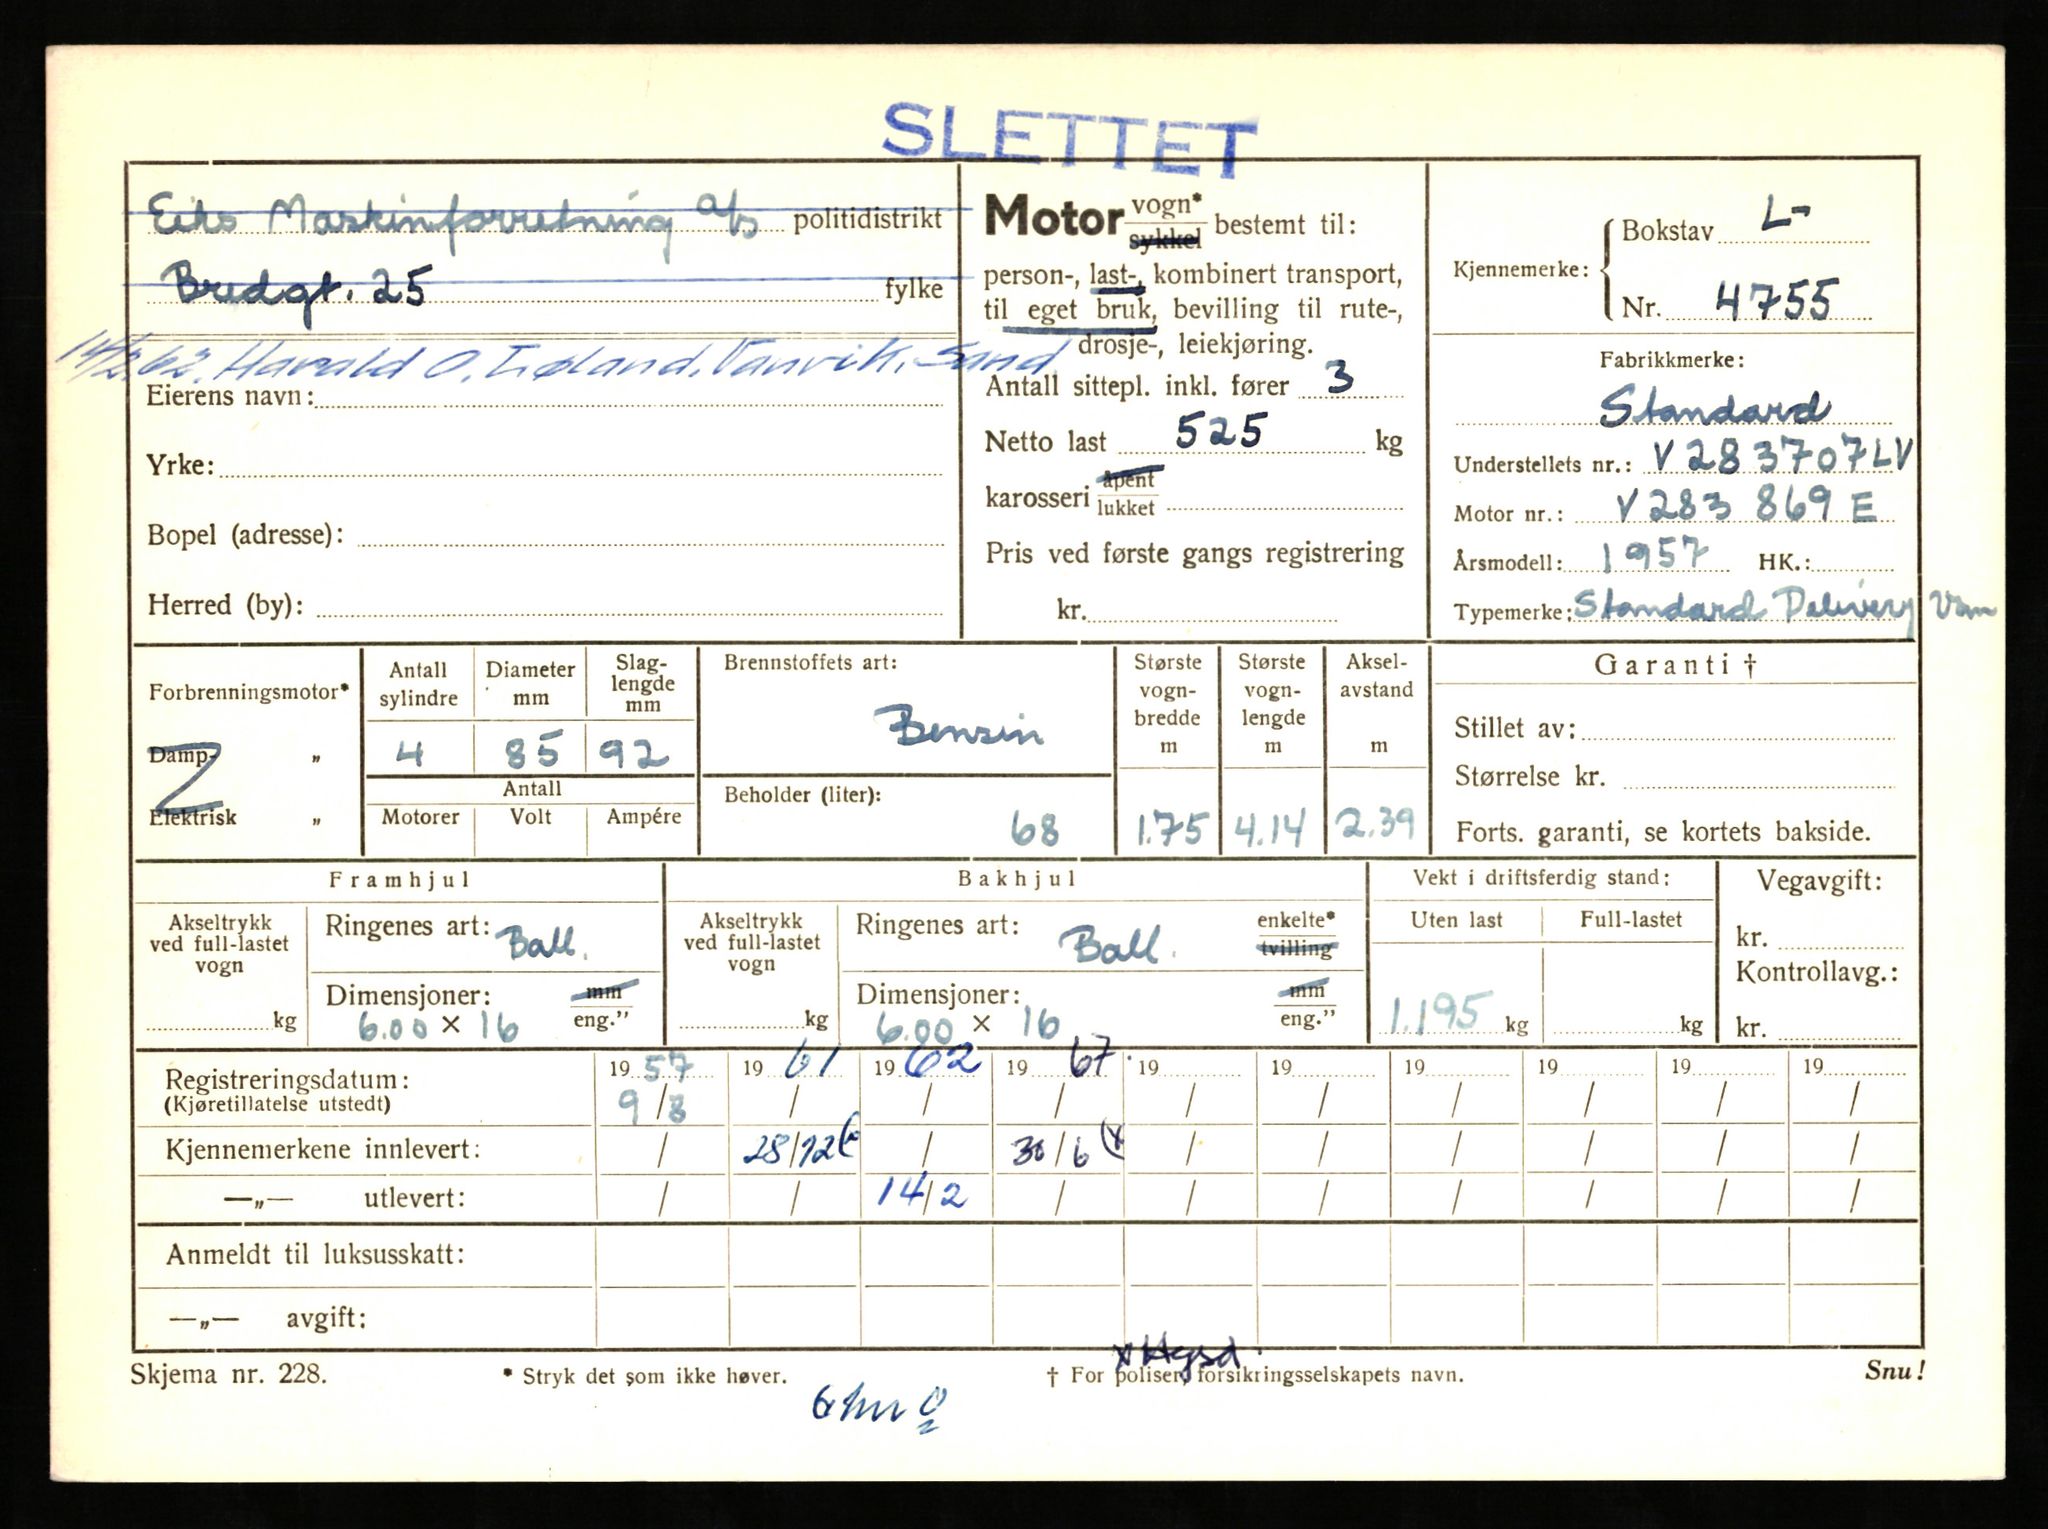 SLETTET
Eiks Maskinforretning a/s politidistrikt
Bredgt. 25 fylke
14/2.62. Harald O. Vanvik, Sand
Eierens navn:
Yrke:
Bopel (adresse):
Herred (by):
Motor vogn* sykkel bestemt til:
person-, last-, kombinert transport,
til eget bruk, bevilling til rute-,
drosje-, leiekjøring.
Antall sittepl. inkl. fører 3
Netto last 525 kg
karosseri åpent lukket
Pris ved første gangs registrering
kr.
Kjennemerke: Bokstav L-
Nr. 4755
Fabrikkmerke:
Standard
Understellets nr.: V283707LV
Motor nr.: V283 869 E
Årsmodell: 1957 HK.:
Typemerke: Standard Delivery Van
Forbrenningsmotor*
Damp- „
Elektrisk „
Antall sylindre
Diameter mm
Slag-lengde mm
4 85 92
Antall
Motorer Volt Ampére
Brennstoffets art:
Bensin
Beholder (liter):
68
Største vogn-bredde m
1.75
Største vogn-lengde m
4.14
Aksel-avstand m
2.39
Garanti †
Stillet av:
Størrelse kr.
Forts. garanti, se kortets bakside.
Framhjul
Akseltrykk
ved full-lastet
vogn
kg
Ringenes art: Ball.
Dimensjoner: mm
6.00 × 16 eng.”
Bakhjul
Akseltrykk
ved full-lastet
vogn
kg
Ringenes art: Ball. enkelte* tvilling
Dimensjoner: mm
6.00 × 16 eng.”
Vekt i driftsferdig stand:
Uten last Full-lastet
1.195 kg kg
Vegavgift:
kr.
Kontrollavg.:
kr.
Registreringsdatum: 1957 1961 1962 1967. 19 19 19 19 19 19
(Kjøretillatelse utstedt) 9/8 / / / / / / / / /
Kjennemerkene innlevert: / 28/12 / 30/6 (x / / / / / /
—„— utlevert: / / 14/2 / / / / / / /
Anmeldt til luksusskatt:
—„— avgift:
Skjema nr. 228.
* Stryk det som ikke høver.
x Hgsd.
† For poliser, forsikringsselskapets navn.
Snu!